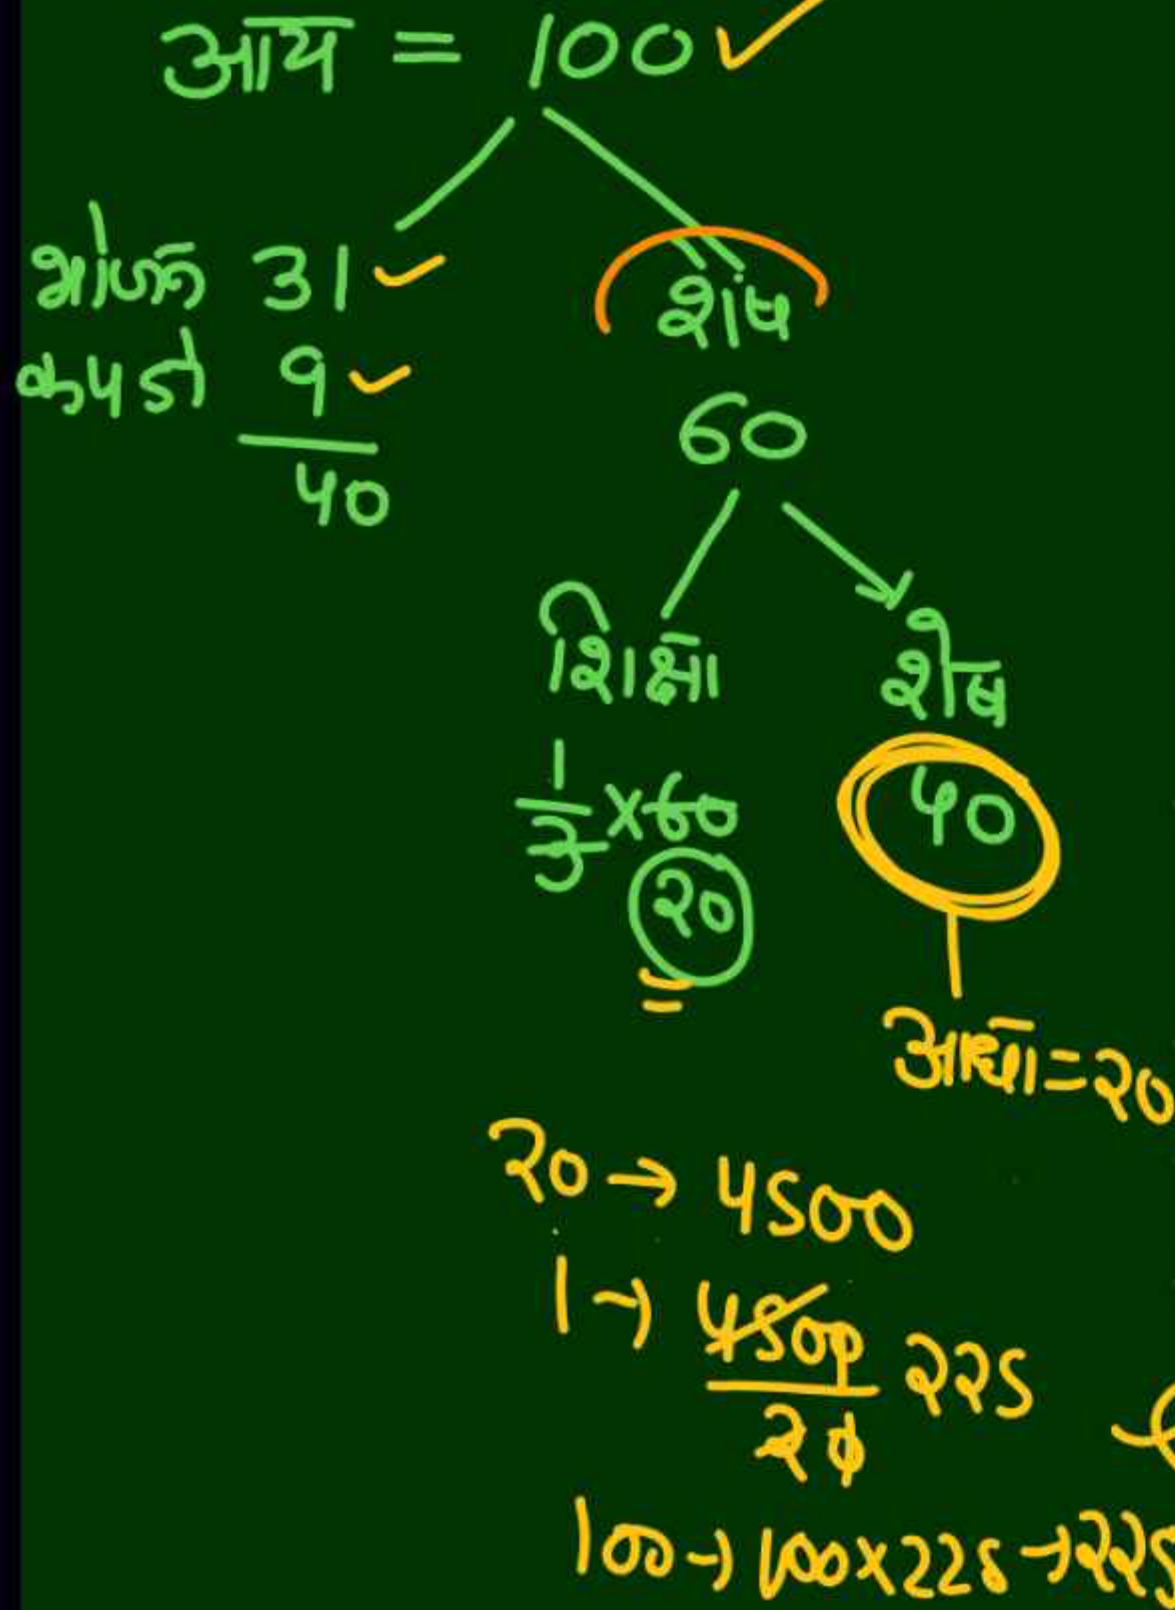 आय = 100
भोजन 31
कपडो 9
40
शेष
60
शिक्षा
1/3 × 60
20
शेष
40
आधा = 20
20 → 4500
1 → 4500/20 225
100 → 100×225 → 225